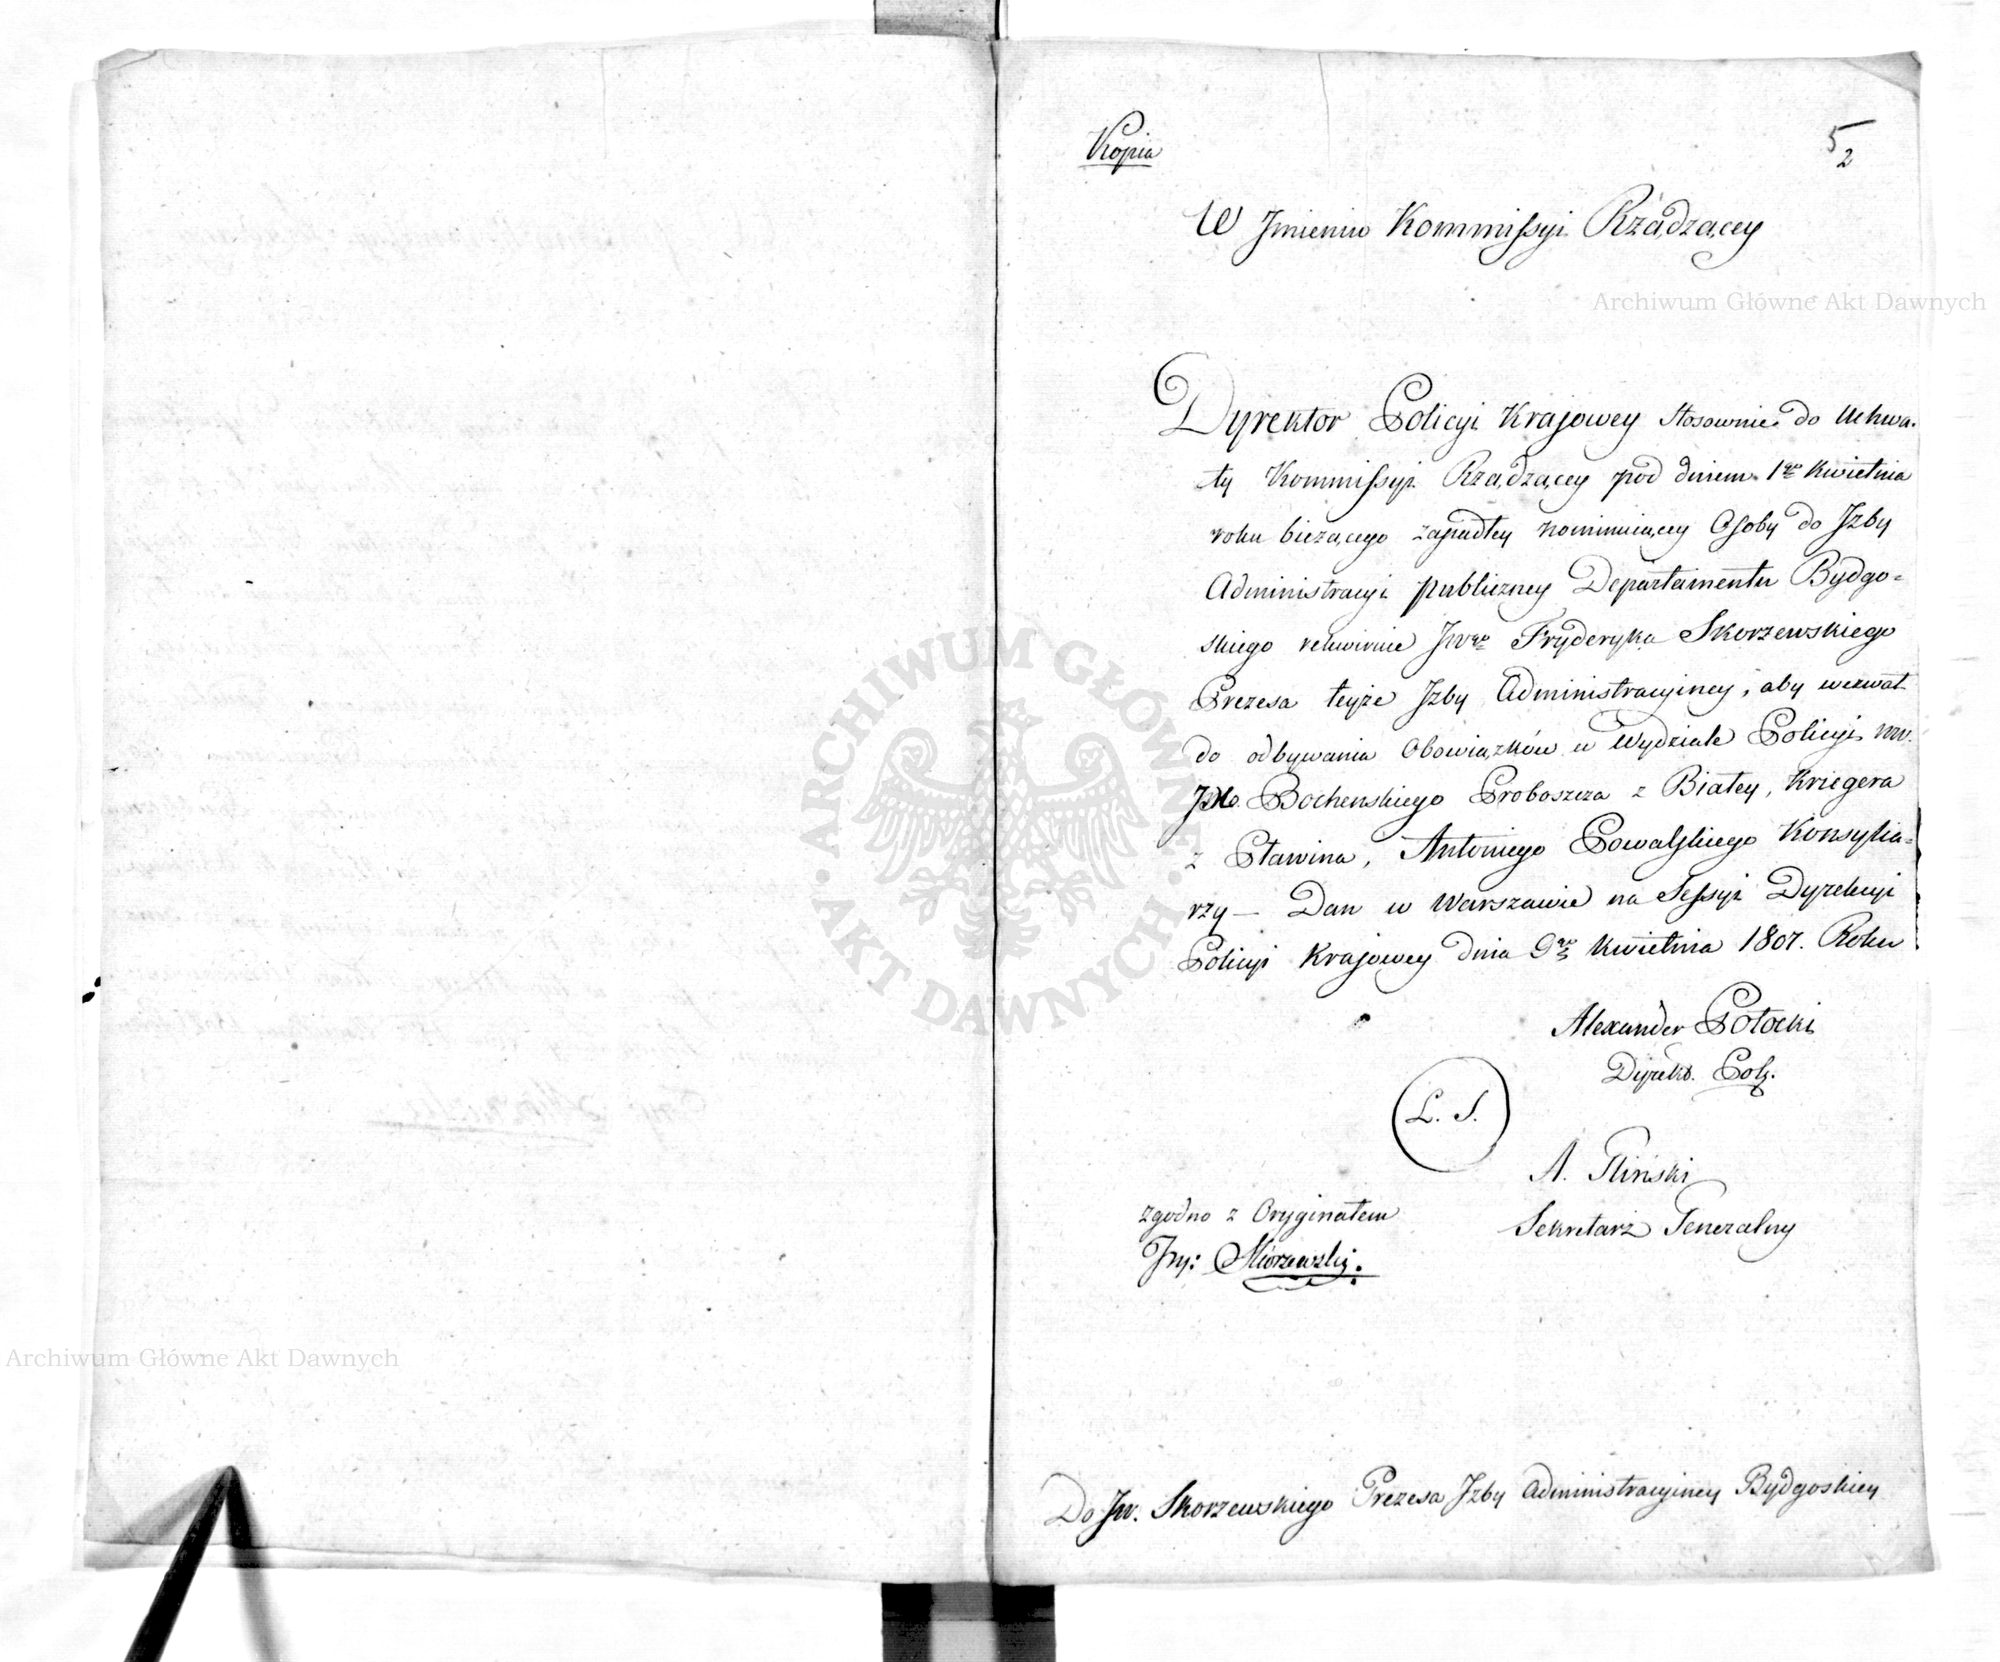 Kopia
5
2
W Jmieniu Kommissyi Rządzącey
Dyrektor Policyi Krajowey stosownie do Uchwa-
ły Kommissyi Rządzącey pod dniem 1go Kwietnia
roku bieżącego zapadłey nominuiącey Osoby do Jzby
Administracyi publiczney Departamentu Bydgo=
skiego rekwiruie JWgo Fryderyka Skorzewskiego
Prezesa teyże Jzby Administracyiney, aby wezwał
do odbywania Obowiązków w Wydziale Policyi
Bochenskiego Proboszcza z Białey, Kriegera
z Sławina, Antoniego Powalskiego Konsylia=
rzy — Dan w Warszawie na Sessyi Dyrekcyi
Policyi Krajowey dnia 9go Kwietnia 1807. Roku
Alexander Potocki
Dyrekt. Pol.
L. S.
A. Gliński
Sekretarz Generalny
zgodno z Oryginałem
Fry: Skorzewski.
Do JW. Skorzewskiego Prezesa Jzby Administracyiney Bydgoskiey
Archiwum Główne Akt Dawnych
Archiwum Główne Akt Dawnych
ARCHIWUM GŁÓWNE AKT DAWNYCH